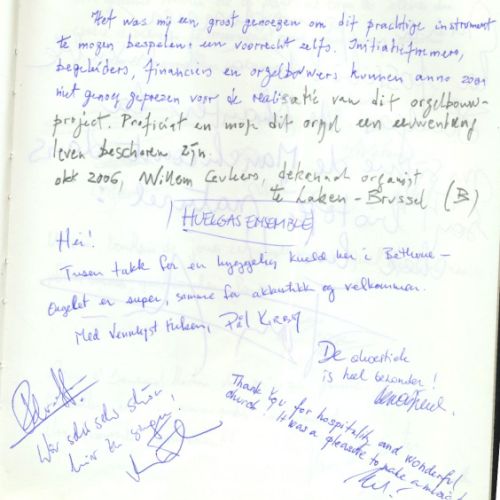 Het was mij een groot genoegen om dit prachtige instrument
te mogen bespelen: een voorrecht zelfs. Initiatiefnemers,
begeleiders, financiers en orgelbouwers kunnen anno 2001
niet genoeg geprezen voor de realisatie van dit orgelbouw-
project. Proficiat en moge dit orgel een eeuwenlang
leven beschoren zijn.
okt 2006, Willem Ceuleers, dekenaal organist
te Laken - Brussel (B)
HUELGAS ENSEMBLE
Hei!
Tusen takk for en hyggelig kveld her i Bethune -
Orgelet er super, samme for akkustikk og velkommen.
Med vennlyst hilsen, Pål
De akoestiek
is heel bijzonder!
Thank you for hospitality and wonderful
church. It was a pleasure to make a music
War sehr sehr schön
hier zu singen!